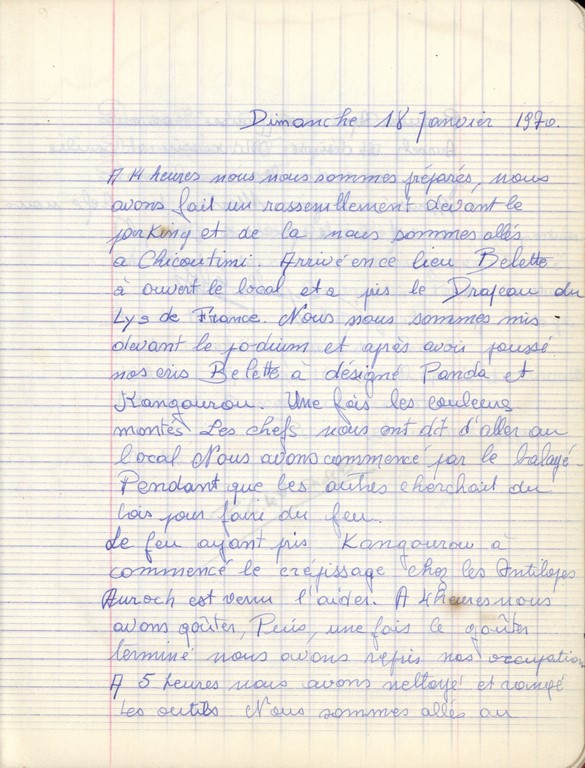 Dimanche 18 Janvier 1970.
A 14 heures nous nous sommes préparés, nous
avons fait un rassemllement devant le
parKing et de la nous sommes allés
a Chicoutimi. Arrivé en ce lieu Belette
à ouvert le local et a pis le Drapeau du
Lys de France. Nous nous sommes mis
devant le podium et après avoir poussé
nos cris Belette à désigné Panda et
Kangourou. Une fois les couleurs
montés Les chefs nous ont dit d'aller au
local Nous avons commencé par le balayé.
Pendant que les autres cherchait du
bois pour faire du feu.
Le feu ayant pris Kangourou à
commencé le crépissage chez les Antilopes
Auroch est venu l'aider. A 4 heures nous
avons goûter, Puis, une fois le goûter
terminé nous avons repis nos occupation
A 5 heures nous avons nettoyé et rangé
Les outils Nous sommes allés au